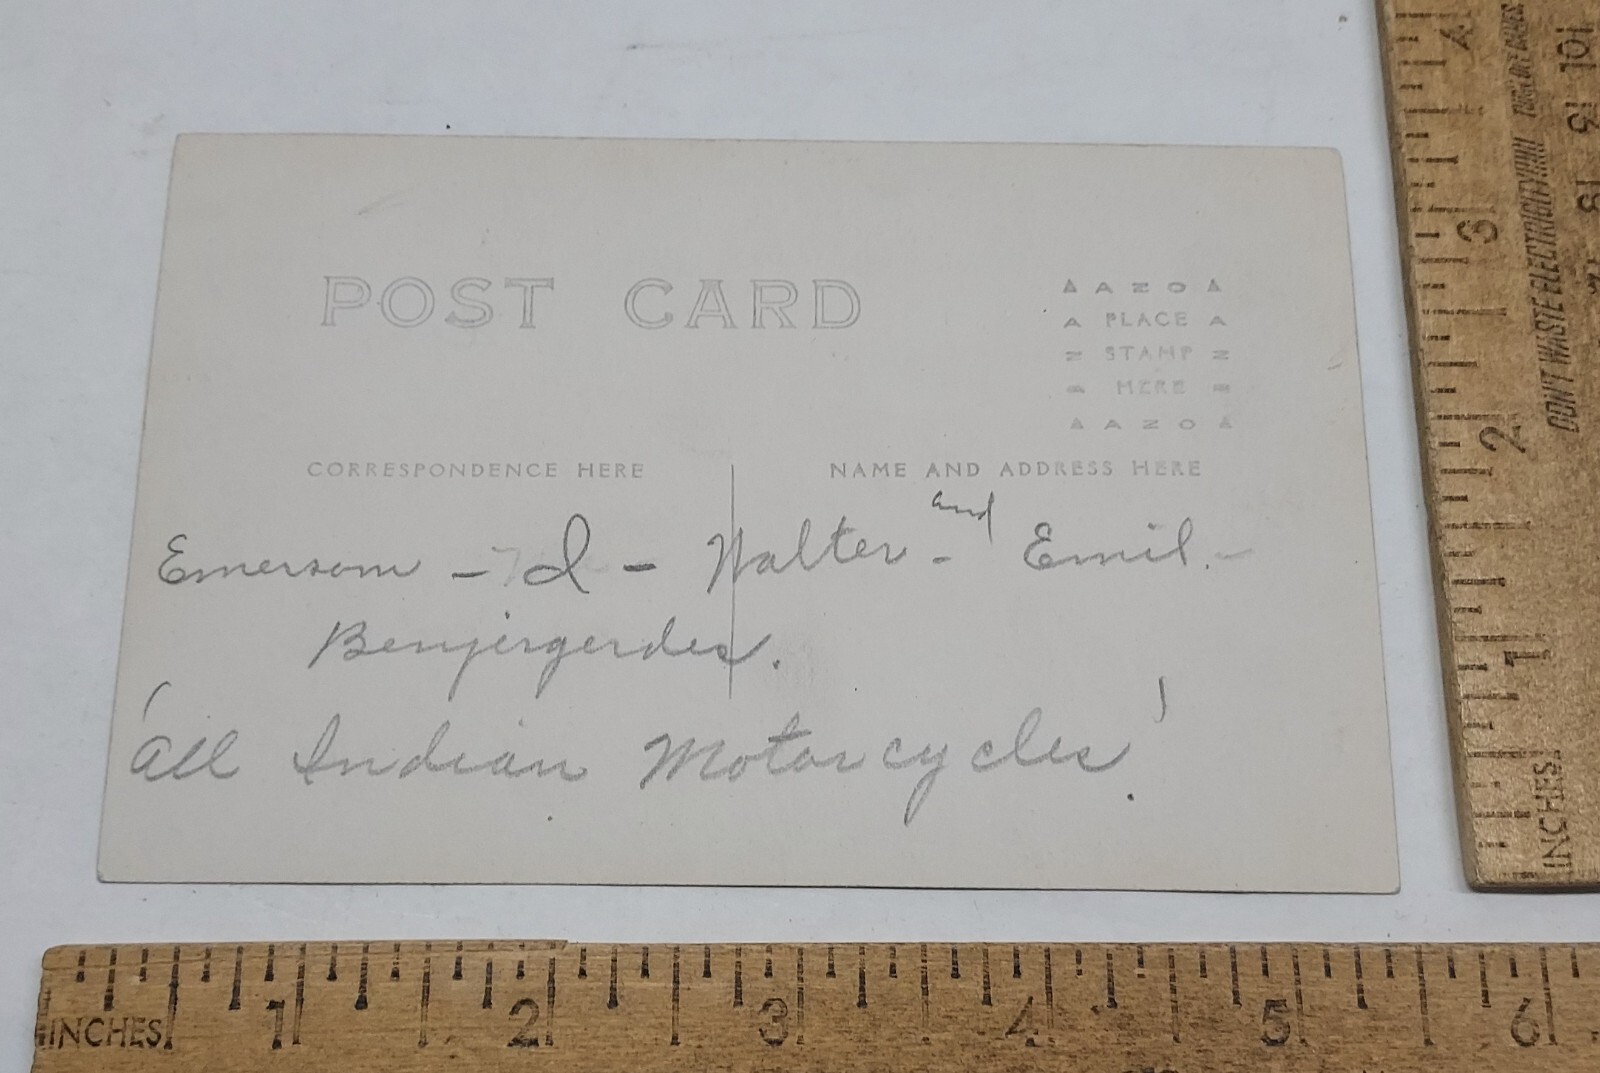 POST CARD
AZO
A PLACE A
Z STAMP Z
O HERE O
AZO
CORRESPONDENCE HERE
NAME AND ADDRESS HERE
and
Emerson - I - Walter - Emil. -
Benjergerdes.
'All Indian Motorcycles.'
INCHES 1 2 3 4 5 6
INCHES 1 2 3 4
DON'T WASTE ELECTRICITY